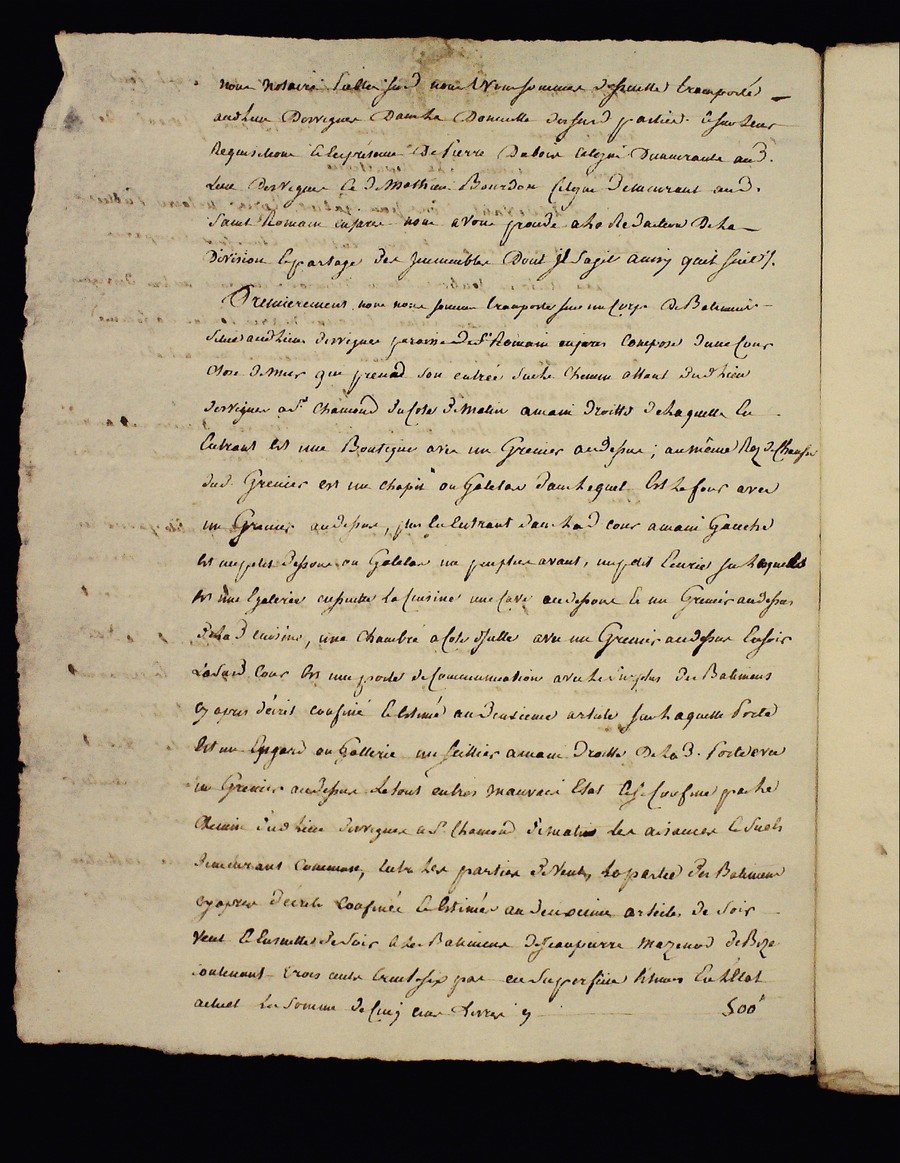 nous notaire sommes transporté
audt lieu Desvignes Dans Le Domicille desquels parties. et sur leur
Requisition et en présence De Pierre Dubois Citoyen Demeurant aud.
Lieu des vignes et De Mathieu Bourdon Citoyen demeurant aud.
Saint Romain en jarez nous avons procédé a la Redaction De la
Division et partage des jmmeubles Dont jl s'agit ainsy qu'il suit
Premierement nous nous sommes transportés sur un Corps De Batiment
Situé audt Lieu desvignes paroisse de St Romain en jarez Composé d'une Cour
Close de murs qui prend son entrée sur le Chemin allant dudt Lieu
desvignes a St Chamond du Coté de Matin a main droitte de laquelle En
Entrant Est une Boutique avec un Grenier audessus ; au même Rez de Chaussée
dud. Grenier est un chapit ou Galetas dans lequel Est le four avec
un Grenier audessus, puis En Entrant dans lad cour a main Gauche
est un petit dessous ou Galetas un peu plus avant, un petit Ecurie sur laquelle
est une Galerie ensuitte la Cuisine une Cave audessous et un Grenier audessus
de lad cuisine, une Chambre a Coté d'jcelle avec un Grenier audessus En soir
Ladt Cour est une porte de Communication avec le surplus des Batimens
cy apres décrit confiné et Estimé au deuxieme article sur laquelle Porte
Est un Engard ou Gallerie un Sellier a main droitte De lad. Porte avec
un Grenier audessus Le tout en tres mauvais Etat et Se Confine par le
Chemin dudt Lieu desvignes a St Chamond de matin les aisances et Suels
demeurant Communs, Entre les parties de vent, la partie des Batimens
cy apres décrits Confinée et Estimée au deuxieme article de soir
vent et Ensuitte de soir et les Batimens de Jean pierre Mazenod de Bize
contenant trois cents trente six pas en Superficie Estimés En l'Etat
actuel La Somme de Cinq cens Livres cy 500#